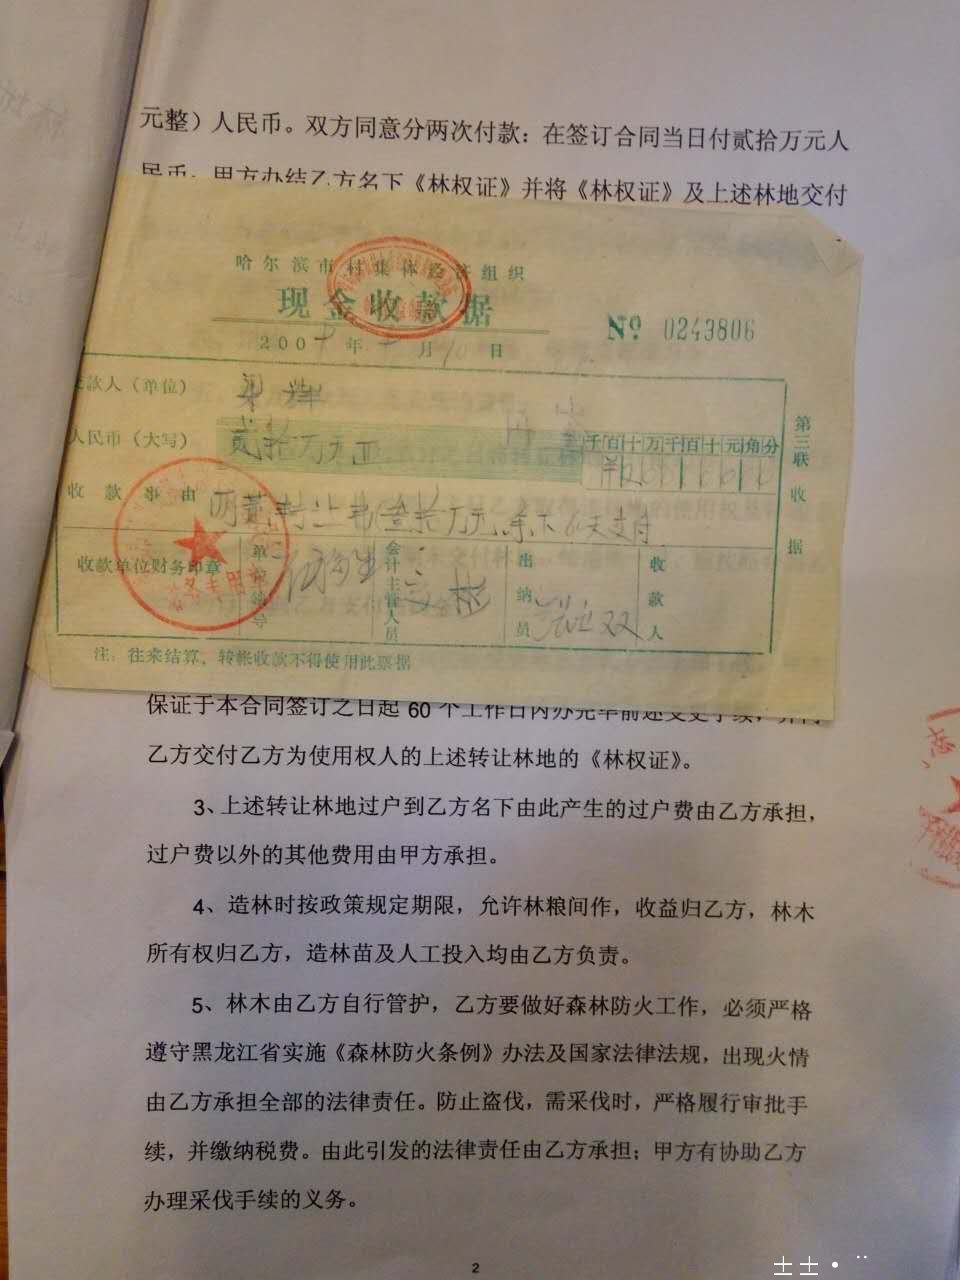 元整）人民币。双方同意分两次付款：在签订合同当日付贰拾万元人
民币。甲方办结乙方名下《林权证》并将《林权证》及上述林地交付
哈尔滨市村集体经济组织
现金收款据
№ 0243806
200 年 月 10 日
交款人（单位）
人民币（大写） 贰拾万元正
千百十万千百十元角分
收款事由
万元 余下 支付
收款单位财务印章
财务专用章
领导
会计主管人员
出纳员
收款人
第三联 收据
注：往来结算、转帐收款不得使用此票据
保证于本合同签订之日起 60 个工作日内办完毕前述变更手续，并向
乙方交付乙方为使用权人的上述转让林地的《林权证》。
3、上述转让林地过户到乙方名下由此产生的过户费由乙方承担，
过户费以外的其他费用由甲方承担。
4、造林时按政策规定期限，允许林粮间作，收益归乙方，林木
所有权归乙方，造林苗及人工投入均由乙方负责。
5、林木由乙方自行管护，乙方要做好森林防火工作，必须严格
遵守黑龙江省实施《森林防火条例》办法及国家法律法规，出现火情
由乙方承担全部的法律责任。防止盗伐，需采伐时，严格履行审批手
续，并缴纳税费。由此引发的法律责任由乙方承担；甲方有协助乙方
办理采伐手续的义务。
2